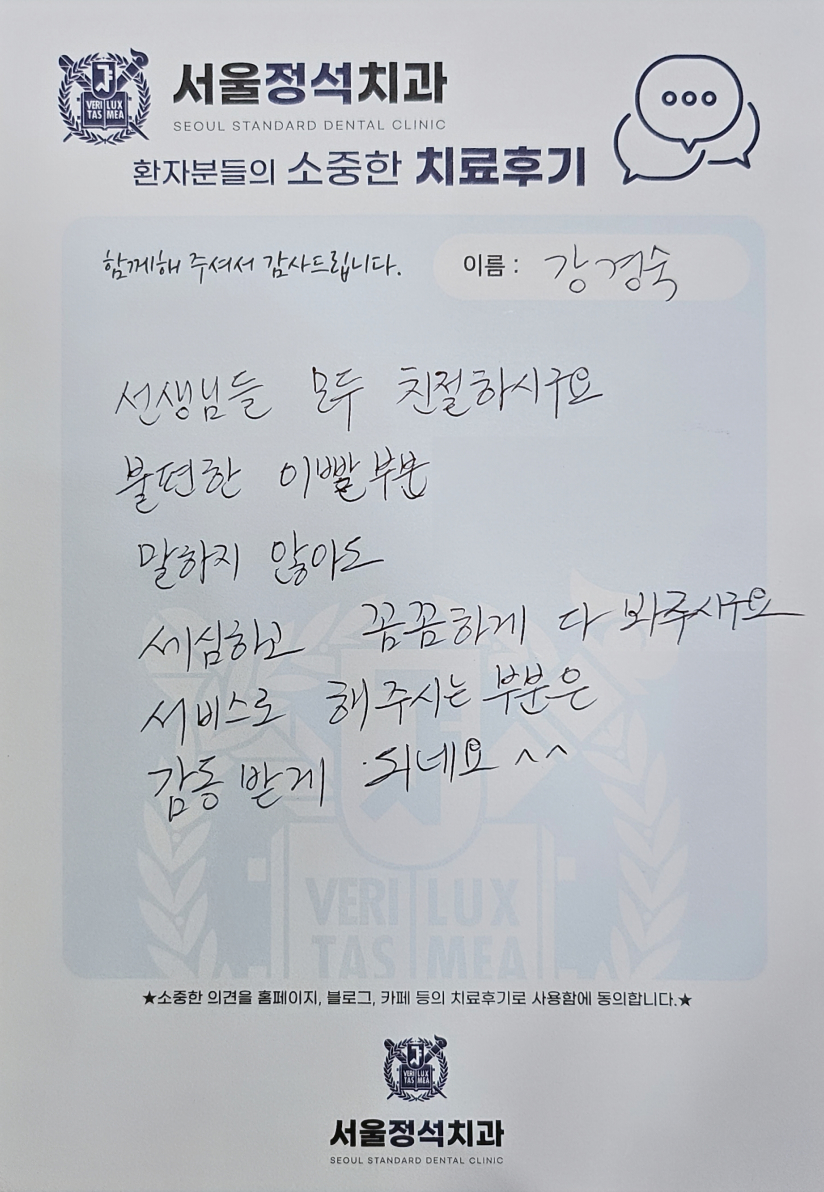 VERI LUX
TAS MEA
서울정석치과
SEOUL STANDARD DENTAL CLINIC
환자분들의 소중한 치료후기
함께해 주셔서 감사드립니다.
이름 : 강경숙
선생님들 모두 친절하시구요
불편한 이빨부분
말하지 않아도
세심하고 꼼꼼하게 다 봐주시구요
서비스로 해주시는 부분은
감동받게 되네요 ^^
VERI LUX
TAS MEA
★소중한 의견을 홈페이지, 블로그, 카페 등의 치료후기로 사용함에 동의합니다.★
VERI LUX
TAS MEA
서울정석치과
SEOUL STANDARD DENTAL CLINIC